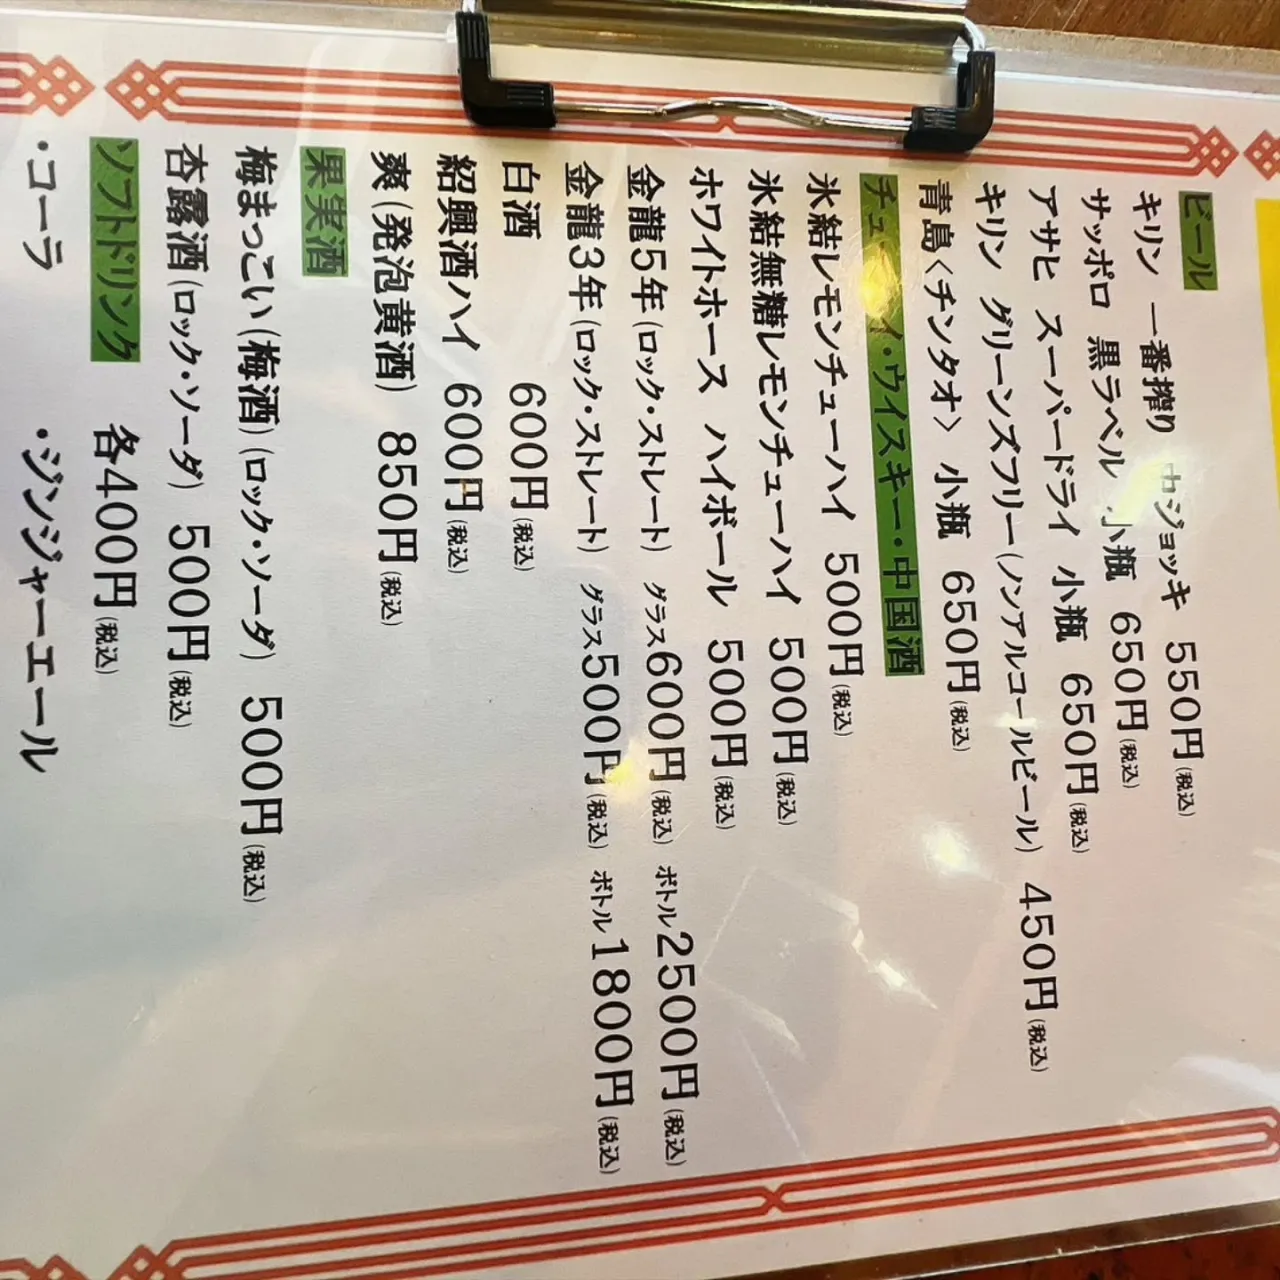 ビール
キリン 一番搾り ジョッキ 550円(税込)
サッポロ 黒ラベル 小瓶 650円(税込)
アサヒ スーパードライ 小瓶 650円(税込)
キリン グリーンズフリー(ノンアルコールビール) 450円(税込)
青島〈チンタオ〉 小瓶 650円(税込)
チューハイ・ウイスキー・中国酒
氷結レモンチューハイ 500円(税込)
氷結無糖レモンチューハイ 500円(税込)
ホワイトホース ハイボール 500円(税込)
金龍5年(ロック・ストレート) グラス600円(税込) ボトル2500円(税込)
金龍3年(ロック・ストレート) グラス500円(税込) ボトル1800円(税込)
白酒 600円(税込)
紹興酒ハイ 600円(税込)
爽(発泡黄酒) 850円(税込)
果実酒
梅まっこい(梅酒)(ロック・ソーダ) 500円(税込)
杏露酒(ロック・ソーダ) 500円(税込)
ソフトドリンク 各400円(税込)
・コーラ ・ジンジャーエール